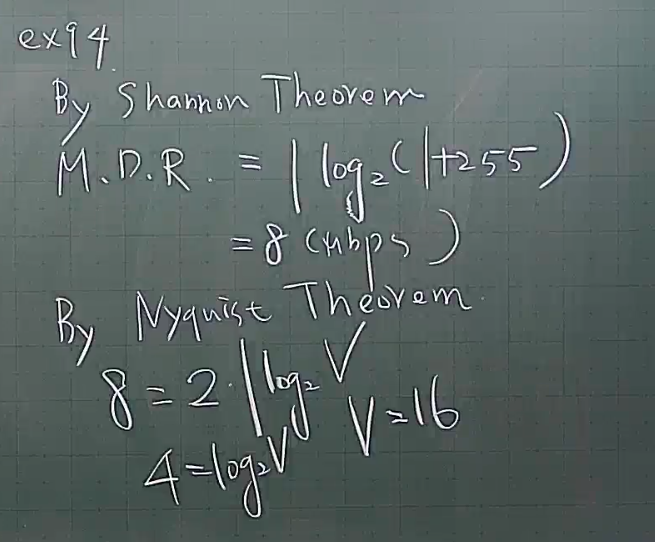 ex94
By Shannon Theorem
M.D.R. = 1 log₂(1+255)
= 8 (Mbps)
By Nyquist Theorem.
8 = 2·1 log₂ V
4 = log₂ V V = 16